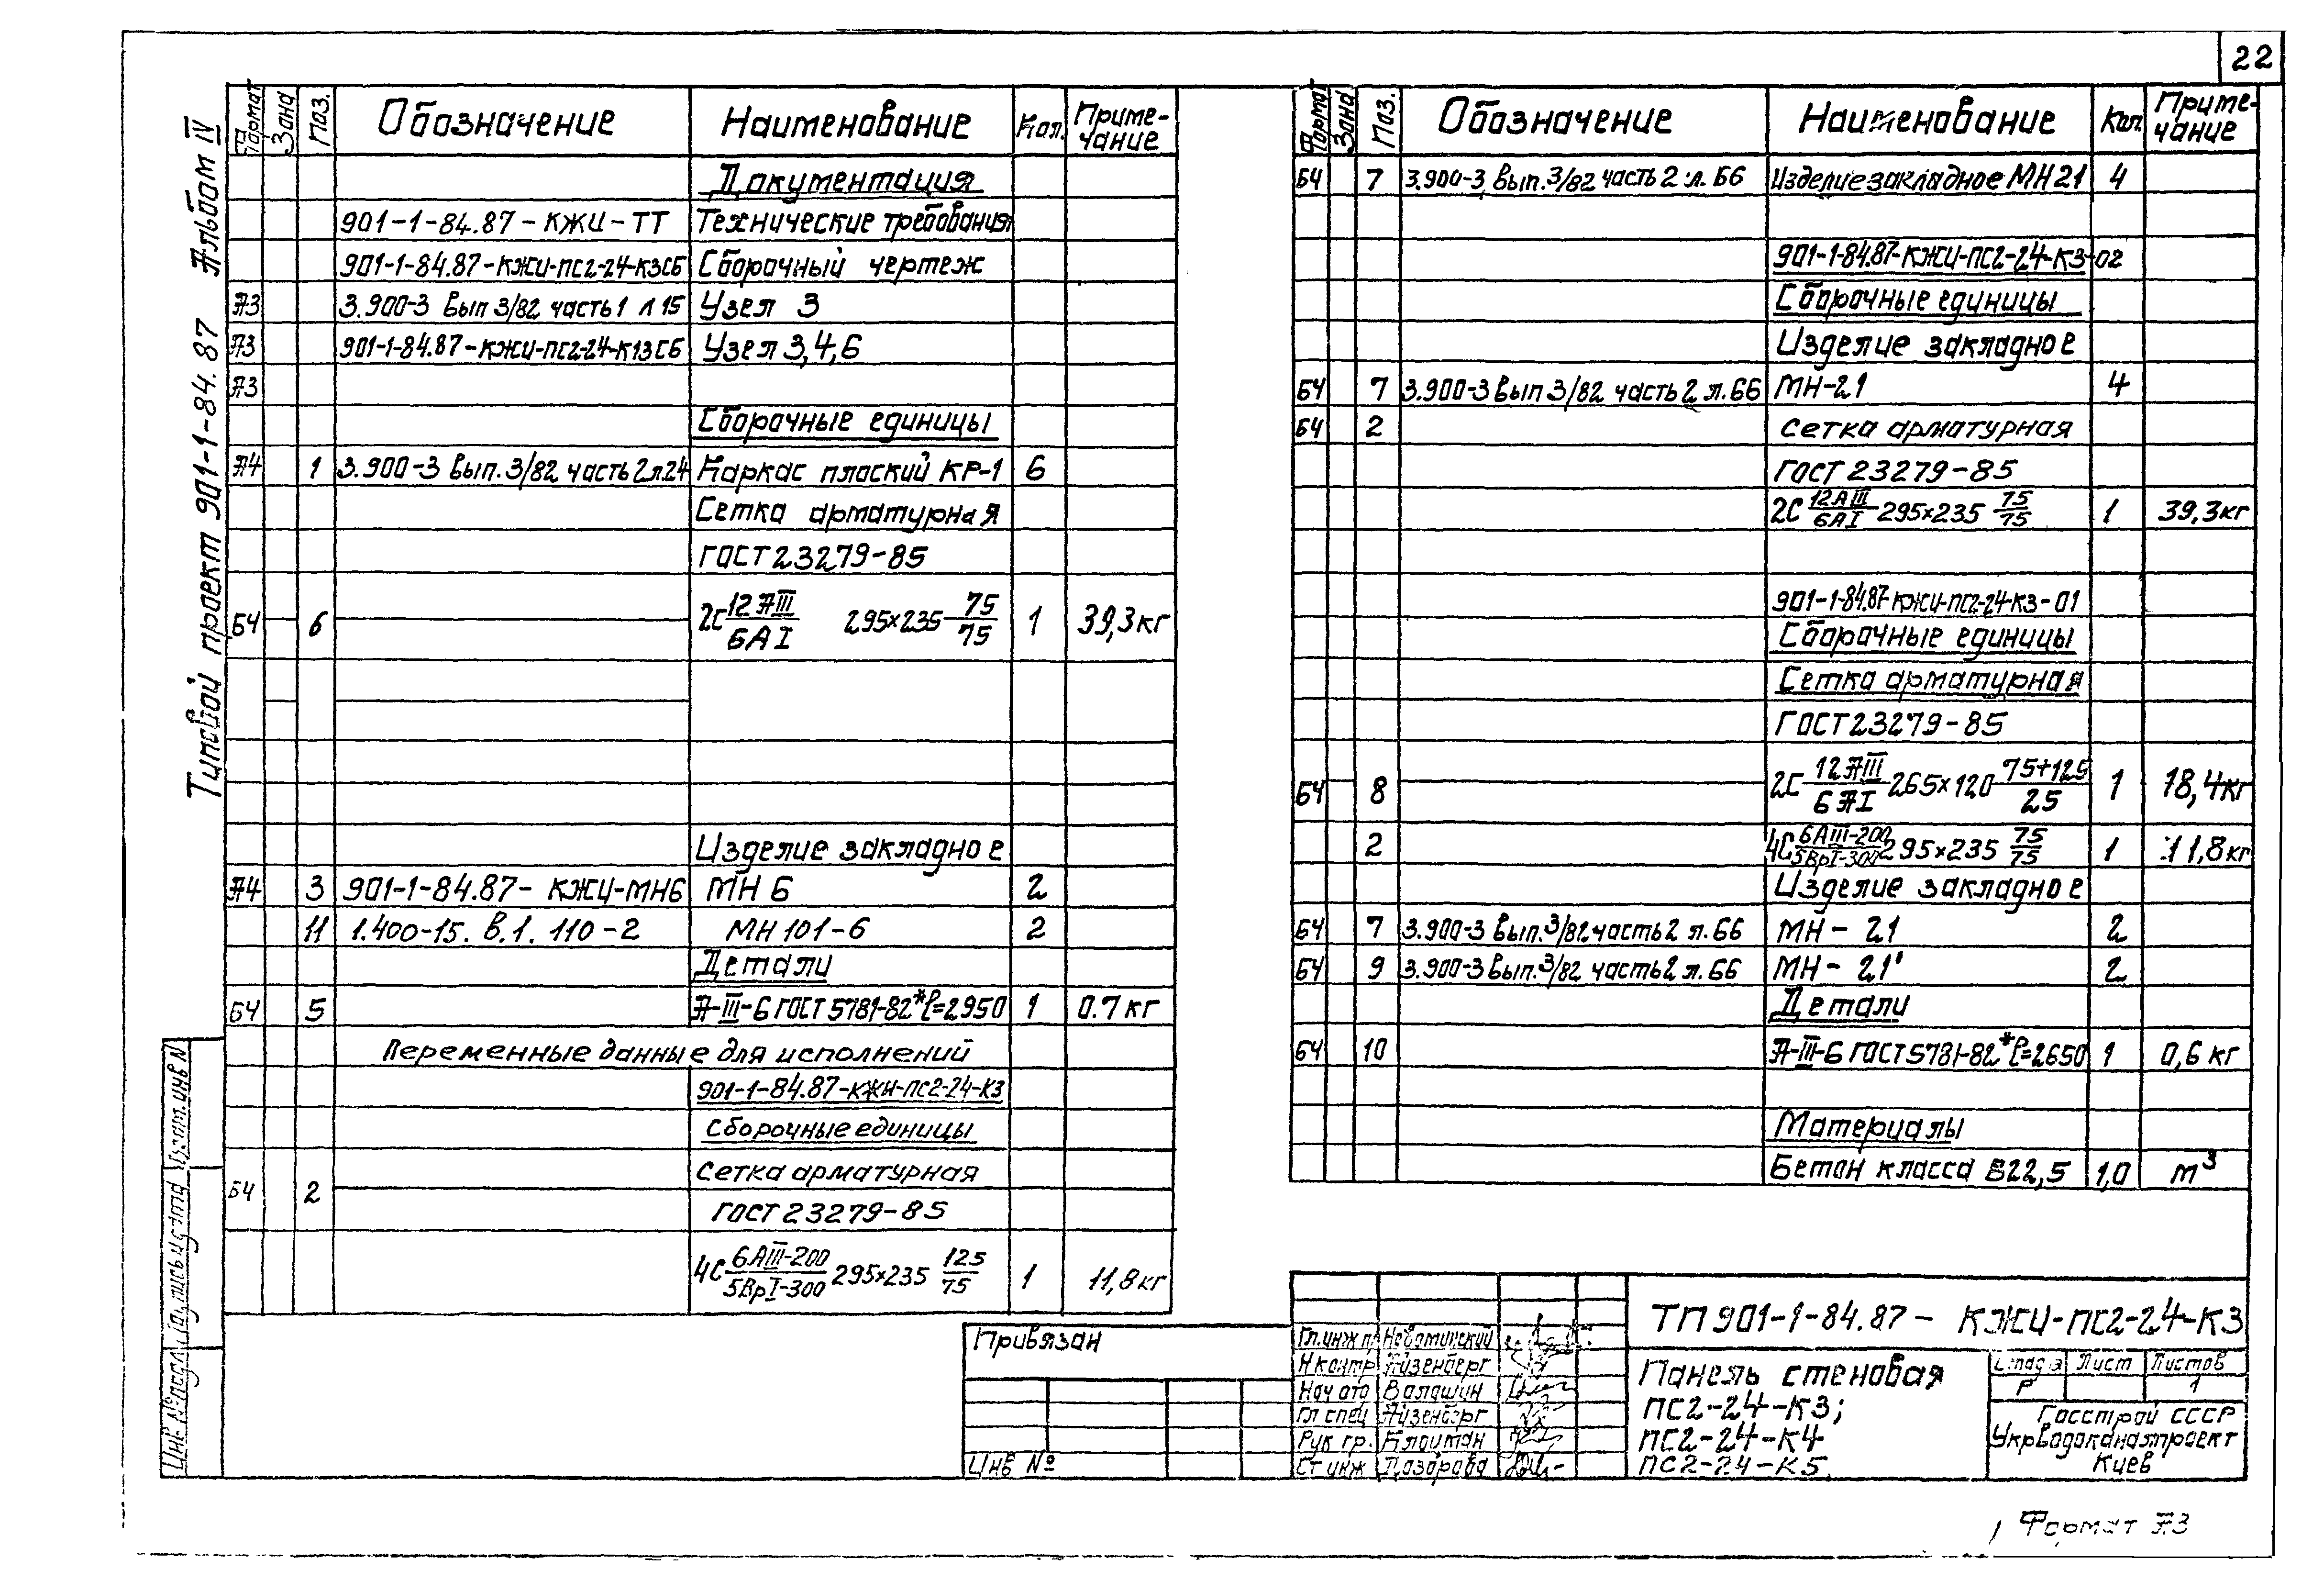 22
Типовой проект 901-1-84.87 Альбом IV
Формат Зона Поз. Обозначение Наименование Кол. Приме-чание
Документация
901-1-84.87-КЖИ-ТТ Технические требования
901-1-84.87-КЖИ-ПС2-24-К3СБ Сборочный чертеж
А3 3.900-3 Вып 3/82 часть 1 л 15 Узел 3
А3 901-1-84.87-КЖИ-ПС2-24-К13СБ Узел 3,4,6
А3
Сборочные единицы
А4 1 3.900-3 Вып. 3/82 часть 2 л.24 Каркас плоский КР-1 6
Сетка арматурная
ГОСТ 23279-85
Б4 6 2С 12АIII/6АI 295×235 75/75 1 39,3кг
Изделие закладное
А4 3 901-1-84.87-КЖИ-МН6 МН 6 2
11 1.400-15. В.1. 110-2 МН 101-6 2
Детали
Б4 5 А-III-6 ГОСТ 5781-82* ℓ=2950 1 0.7 кг
Переменные данные для исполнений
901-1-84.87-КЖИ-ПС2-24-К3
Сборочные единицы
Б4 2 Сетка арматурная
ГОСТ 23279-85
4С 6АIII-200/5ВрI-300 295×235 125/75 1 11,8кг
Формат Зона Поз. Обозначение Наименование Кол. Приме-чание
Б4 7 3.900-3 Вып. 3/82 часть 2 л. 66 Изделие закладное МН21 4
901-1-84.87-КЖИ-ПС2-24-К3-02
Сборочные единицы
Изделие закладное
Б4 7 3.900-3 Вып 3/82 часть 2 л. 66 МН-21 4
Б4 2 Сетка арматурная
ГОСТ 23279-85
2С 12АIII/6АI 295×235 75/75 1 39,3кг
901-1-84.87-КЖИ-ПС2-24-К3-01
Сборочные единицы
Сетка арматурная
ГОСТ 23279-85
Б4 8 2С 12АIII/6АI 265×120 75+125/25 1 18,4кг
2 4С 6АIII-200/5ВрI-300 295×235 75/75 1 11,8кг
Изделие закладное
Б4 7 3.900-3 Вып. 3/82 часть 2 л. 66 МН-21 2
Б4 9 3.900-3 Вып. 3/82 часть 2 л. 66 МН-21' 2
Детали
Б4 10 А-III-6 ГОСТ 5781-82* ℓ=2650 1 0,6 кг
Материалы
Бетон класса В22,5 1,0 м³
Взам. инв N
Подпись и дата
Инв № подл
Привязан
Инв №
Гл. инж пр
Н контр Айзенберг
Нач отд Валашин
Гл спец Айзенберг
Рук гр. Клойтман
Ст инж
ТП 901-1-84.87- КЖИ-ПС2-24-К3
Панель стеновая
ПС2-24-К3;
ПС2-24-К4
ПС2-24-К5.
Стадия Лист Листов
Р 1
Госстрой СССР
Укрводоканалпроект
Киев
Формат А3